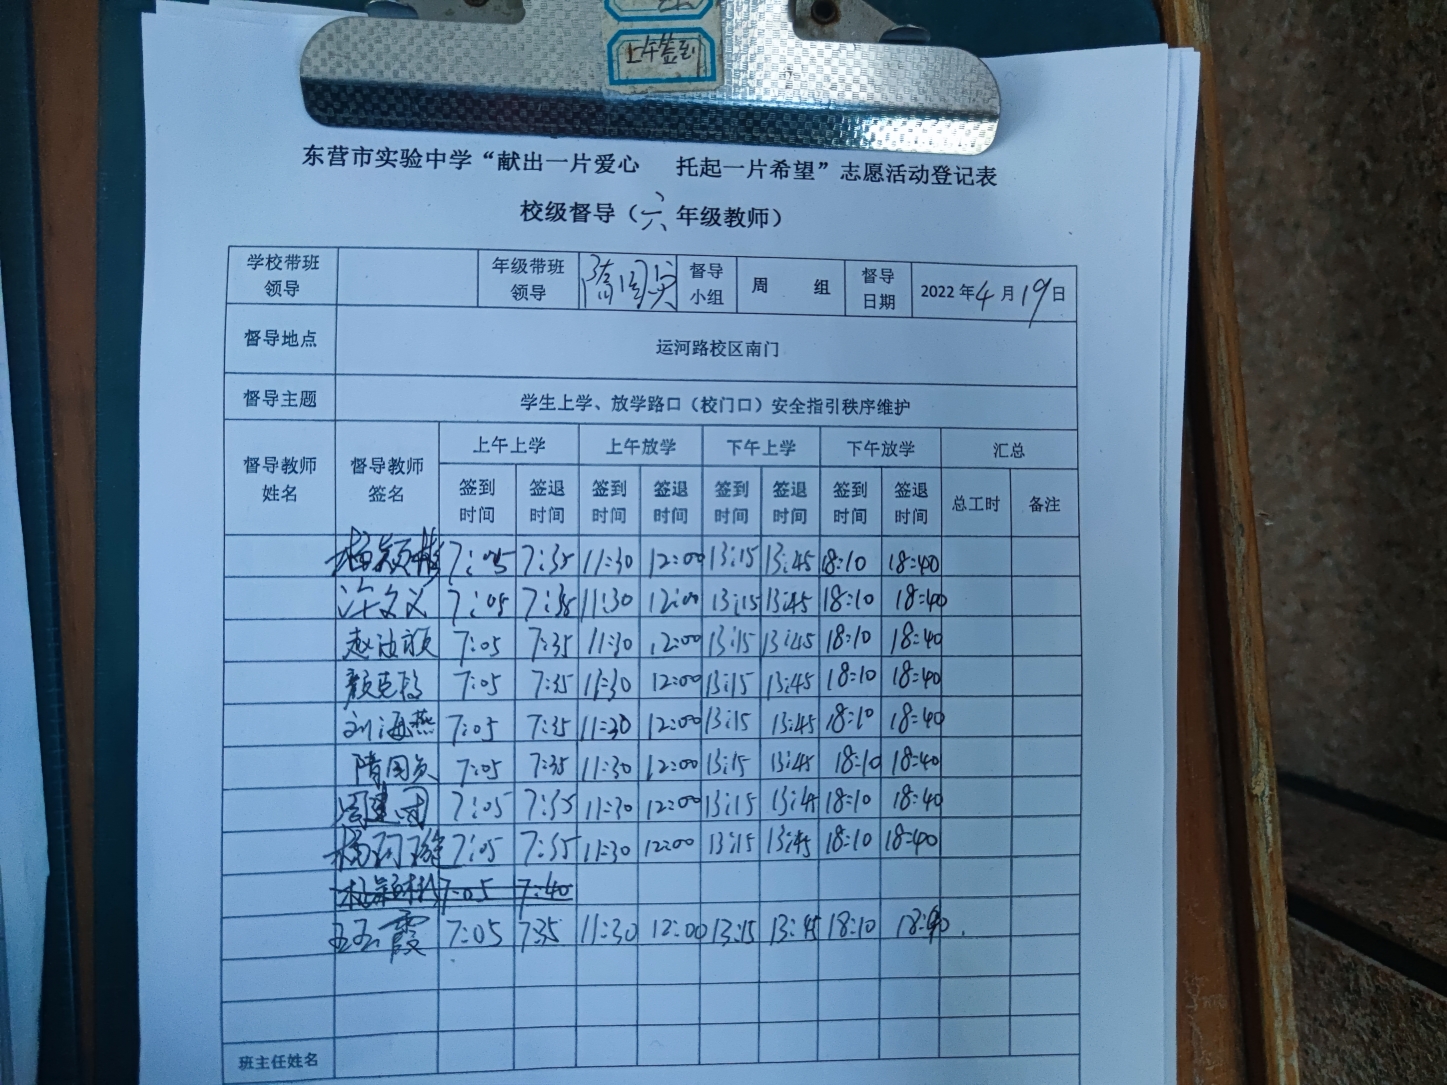 上午签到
东营市实验中学“献出一片爱心 托起一片希望”志愿活动登记表
校级督导（六年级教师）
学校带班领导 年级带班领导 隋国 督导小组 周 组 督导日期 2022年4月19日
督导地点 运河路校区南门
督导主题 学生上学、放学路口（校门口）安全指引秩序维护
督导教师姓名 督导教师签名 上午上学 上午放学 下午上学 下午放学 汇总
签到时间 签退时间 签到时间 签退时间 签到时间 签退时间 签到时间 签退时间 总工时 备注
杨颖 7:05 7:35 11:30 12:00 13:15 13:45 18:10 18:40
许文义 7:05 7:35 11:30 12:00 13:15 13:45 18:10 18:40
赵 7:05 7:35 11:30 12:00 13:15 13:45 18:10 18:40
颜 7:05 7:35 11:30 12:00 13:15 13:45 18:10 18:40
刘海燕 7:05 7:35 11:30 12:00 13:15 13:45 18:10 18:40
隋国 7:05 7:35 11:30 12:00 13:15 13:45 18:10 18:40
周建国 7:05 7:35 11:30 12:00 13:15 13:45 18:10 18:40
杨 7:05 7:35 11:30 12:00 13:15 13:45 18:10 18:40
7:05 7:40
霞 7:05 7:35 11:30 12:00 13:15 13:45 18:10 18:40
班主任姓名